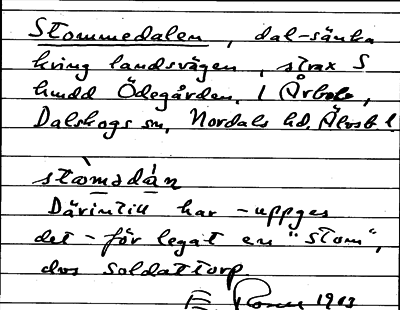 Stommedalen, dal-sänka
kring landsvägen, strax S
hmdd Ödegården, 1 Årbol,
Dalskogs sn, Nordals hd, Älvsb. l.
stòmsdán
Därintill har - uppges
det - för legat en "stom",
dvs soldattorp.
1913